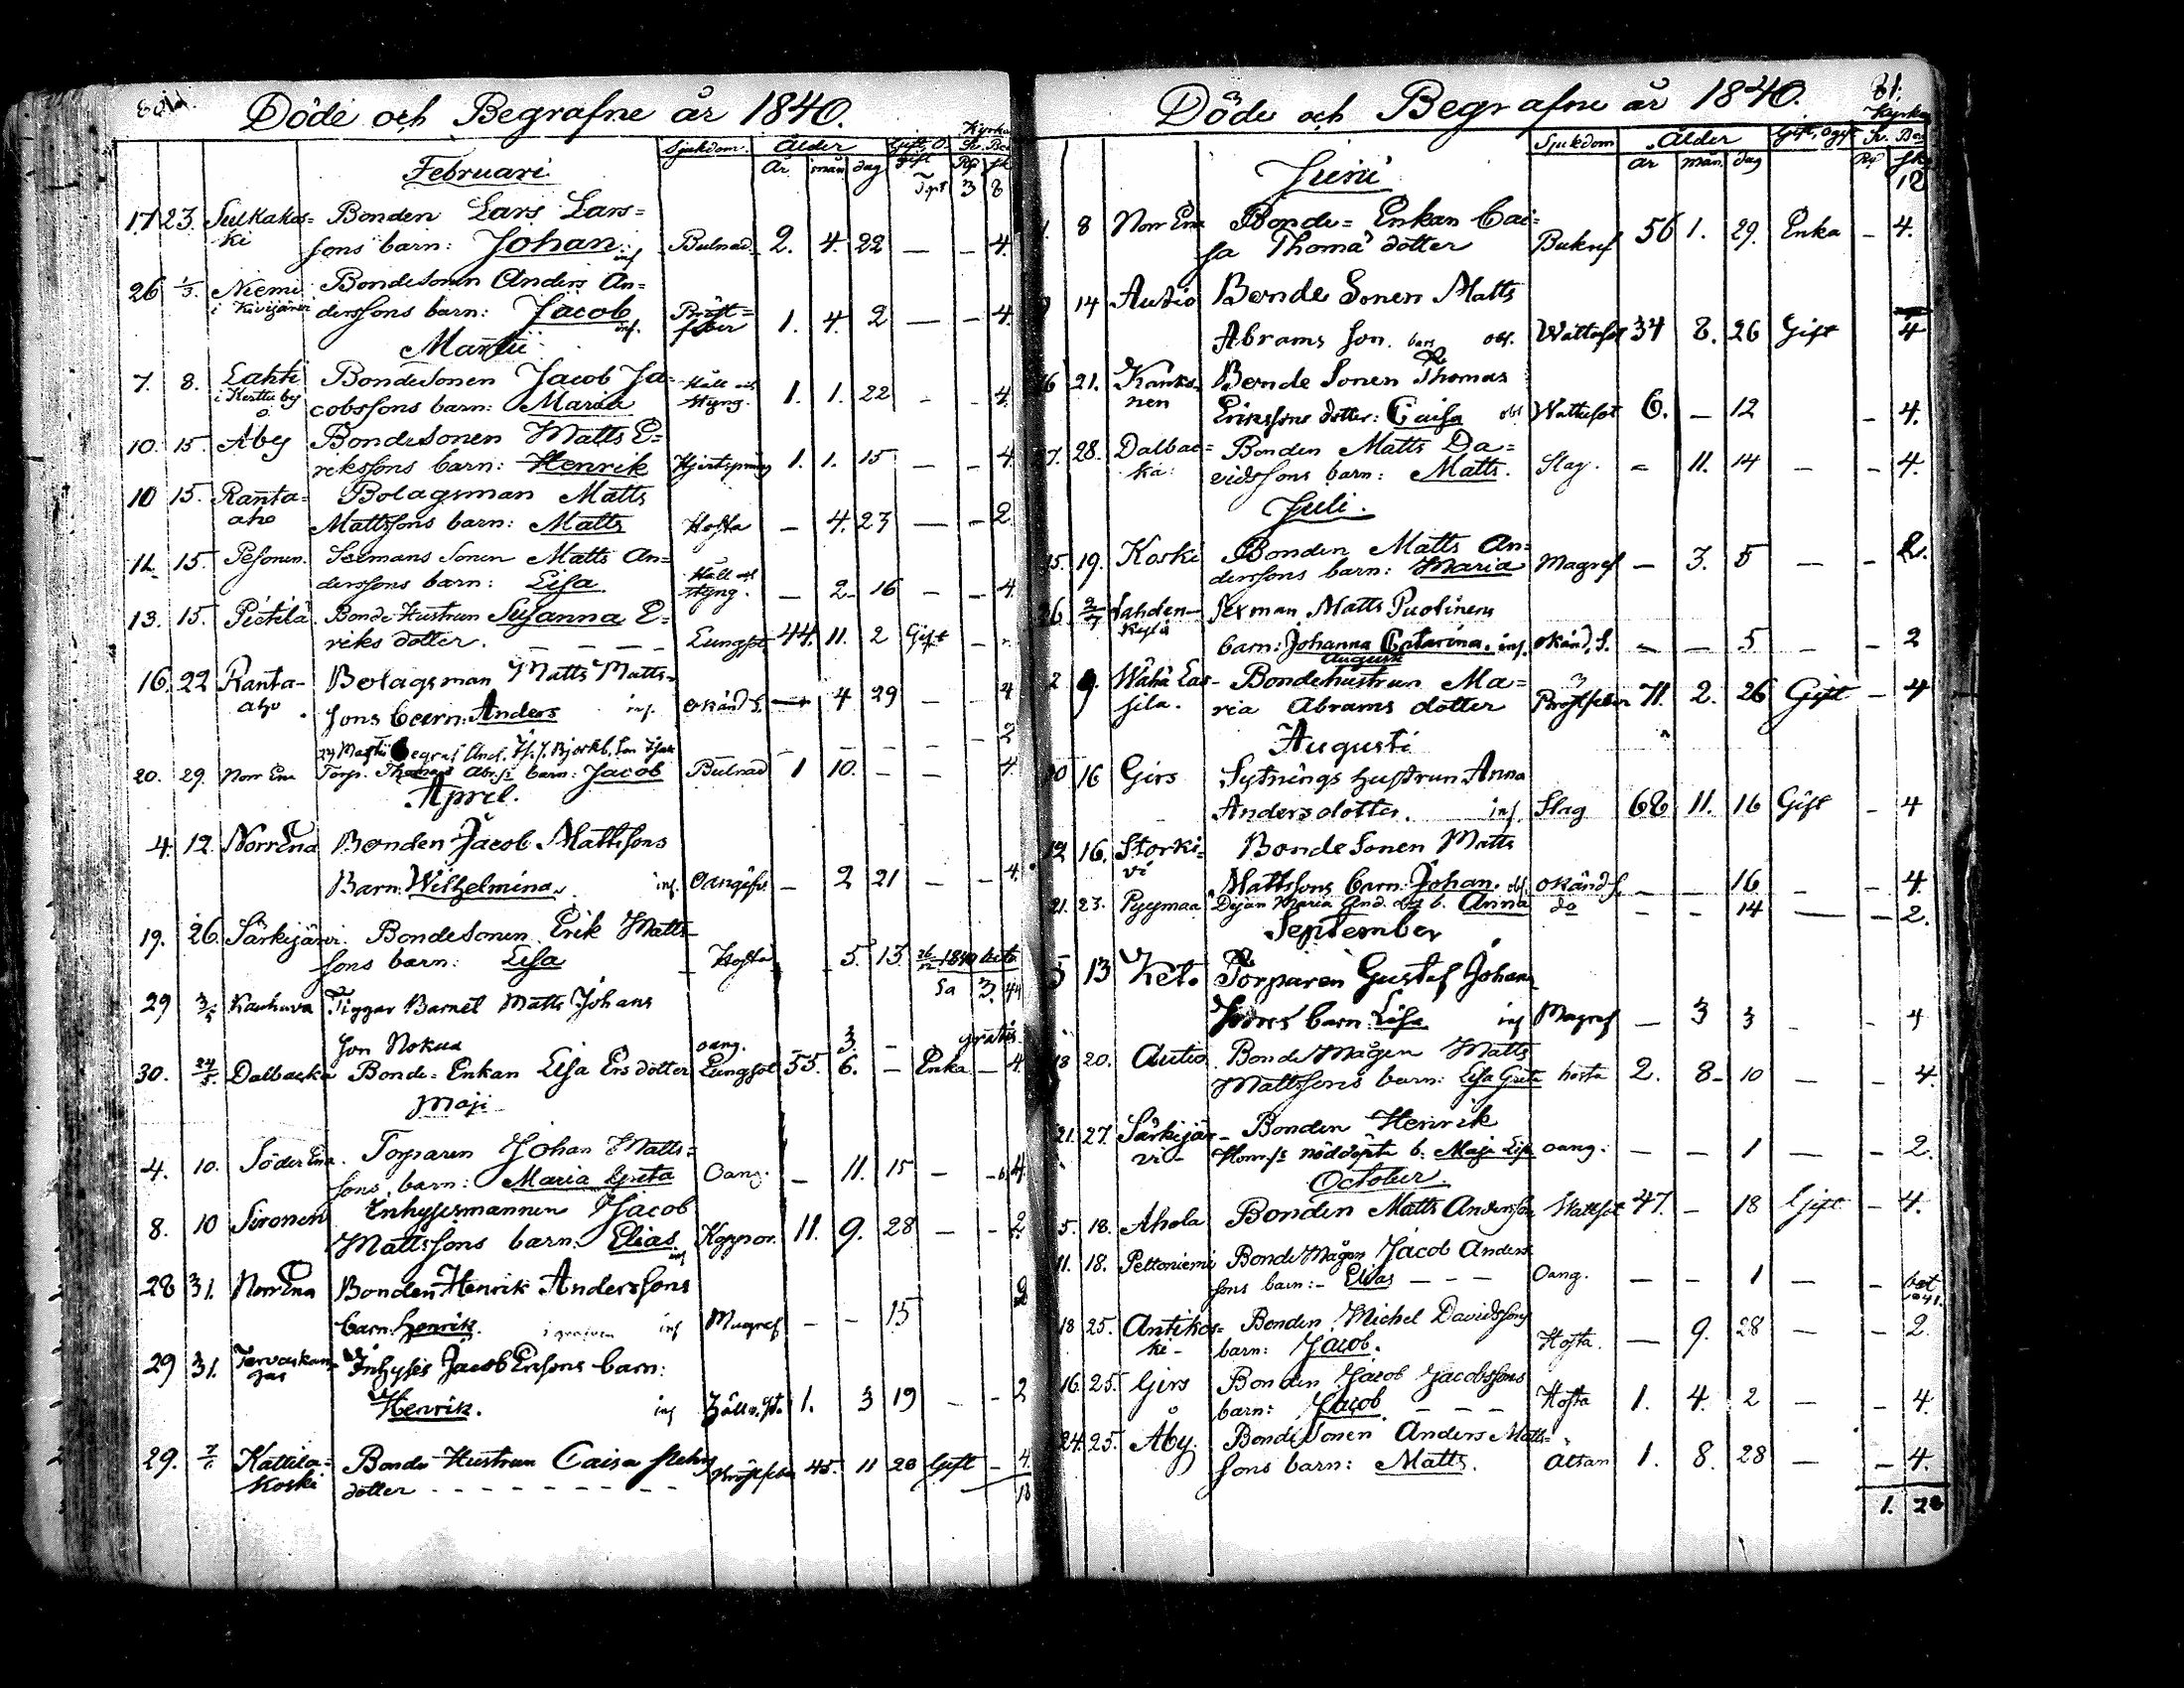 Döde och Begrafne år 1840.
Sjukdom. Ålder Gift, O- Kyrka
gift Sv. Bos
År mån dag Rp sk
Februari
Tpt 3 8
17 23. Sulkakos= Bonden Lars Lars=
ki sons barn: Johan. inf Bulnad. 2. 4. 22 — — 4.
26 1/3. Niemi Bondesonen Anders An=
i Kivijärvi derssons barn: Jacob inf. Bröst= feber 1. 4. 2 — — 4.
Martii
7. 8. Lahti Bondesonen Jacob Ja- Håll och
i Kerttu by cobssons barn: Maria styng. 1. 1. 22 - - 4.
10. 15. Åby Bondesonen Matts E=
rikssons barn: Henrik Hjertspräng 1. 1. 15 — - 4.
10 15. Ranta= Bolagsman Matts
aho Mattssons barn: Matts Hosta — 4. 23 — - 2.
11. 15. Pesonen. Matts An=
derssons barn: Lisa Håll och styng. — 2- 16 — - 4.
13. 15. Pietilä. Bonde Hustrun Susanna E=
riks dotter. — — — — Lungsot 44. 11. 2 Gift —
16. 22 Ranta- Bolagsman Matts Matts-
aho. sons barn: Anders inf. okänd s. — 4 29 — — 4
24 Martii Begraf And. Björkb. son Isak — — — — — 2
20. 29. Norr Ena Torp. Thomas Abr.s: barn: Jacob Bulnad 1 10. — — 4.
April.
4. 12. Norr Ena Bonden Jacob Mattssons
Barn: Wilhelmina. inf. Oangifv. — 2 21 — — 4.
19. 26. Särkijärvi. Bondesonen Erik Matts-
sons barn: Lisa — Hosta 5. 13 26/12 1840 bet.
Sa 3. 44
29 3/5 Kauhava Tiggar Barnet Matts Johans
son Nokua oang. 3. — gratis
30. 24/5. Dalbacka Bonde=Enkan Lisa Ers dotter Lungsot 55. 6. — Enka — 4.
Maji
4. 10. Söder Ena. Torparen Johan Matts=
sons, barn: Maria Greta Oang. — 11. 15 — 4.
8. 10 Sironen Inhysesmannen Jacob
Mattssons barn: Elias inf Koppor. 11. 9. 28 — — 2.
28 31. Norr Ena Bonden Henrik Anderssons 2
barn: Henrik. inf Magref — — 15
29 31. Tervaskan- Inhyses Jacob Ersons barn:
gas Henrik. inf Håll o. st. 1. 3 19 — — 2
29. 7/6 Kattila= Bonde Hustrun Caisa
koski dotter - - - - - - - - - Bröstfeber 45. 11 28 Gift — 4.
18
Döde och Begrafne år 1840. 81.
Kyrka
Sjukdom Ålder Gift, Ogift Sv. Bos
år mån. dag Rp sk
Junii 12
1. 8 Norr Ena Bonde=Enkan Cai=
sa Thomæ dotter Bukref 56 1. 29. Enka — 4.
14 Autio Bonde Sonen Matts
Abrams son. obs. Wattusot 34 8. 26 Gift 4
16 21. Känks- Bonde Sonen Thomas
nen Erikssons dotter: Caisa obs Wattusot 6. — 12 — 4.
27. 28. Dalbac= Bonden Matts Da=
ka: vidssons barn: Matts. Slag. — 11. 14 — — 4.
Juli.
15. 19. Koski Bonden Matts An=
derssons barn: Maria Magref — 3. 5 — — 2.
26 2/ Lahden- Sexman Matts Puolinens
kylä barn: Johanna Catarina. inf. okänd. s. — — 5 — — 2
Augusti
2 9. Wähä Las- Bondehustrun Ma=
sila. ria Abrams dotter Bröstfeber 71. 2. 26 Gift — 4
Augusti
10 16 Girs Sytnings hustrun Anna
Anders dotter. inf. Slag 68 11. 16 Gift — 4
12 16. Storki= Bonde Sonen Matts
vi Mattssons barn: Johan. obs. okänd s. — — 16 — — 4.
21. 23. Pyymaa Dejan Maria And. dot b. Anna do — — 14 — — 2.
September
5 13 Keto Torparen Gustaf Johan
sons barn Lisa inf Magref — 3 3 — — 4
18 20. Autio Bonde Mågen Matts
Mattssons barn: Lisa Greta hosta 2. 8- 10 — — 4.
21. 27. Särkijär- Bonden Henrik
vi- Hom.s: nöddöpta b: Maja Lisa oang: — — 1 — — 2.
October.
5. 18. Ahola Bonden Matts Andersson Wattsot 47. — 18 Gift — 4.
11. 18. Peltoniemi Bonde Mågen Jacob Anders
sons barn:- Elias — — — Oang. — — 1 — — bet 1841.
18 25. Antikos= Bonden Michel Davidssons
ki- barn: Jacob. Hosta. — 9. 28 — — 2.
16. 25. Girs Bonden Jacob Jacobssons
barn: Jacob — — — Hosta 1. 4. 2 — — 4.
24. 25. Åby. Bonde Sonen Anders Matts=
sons barn: Matts. Ältan 1. 8. 28 — — 4.
1. 28